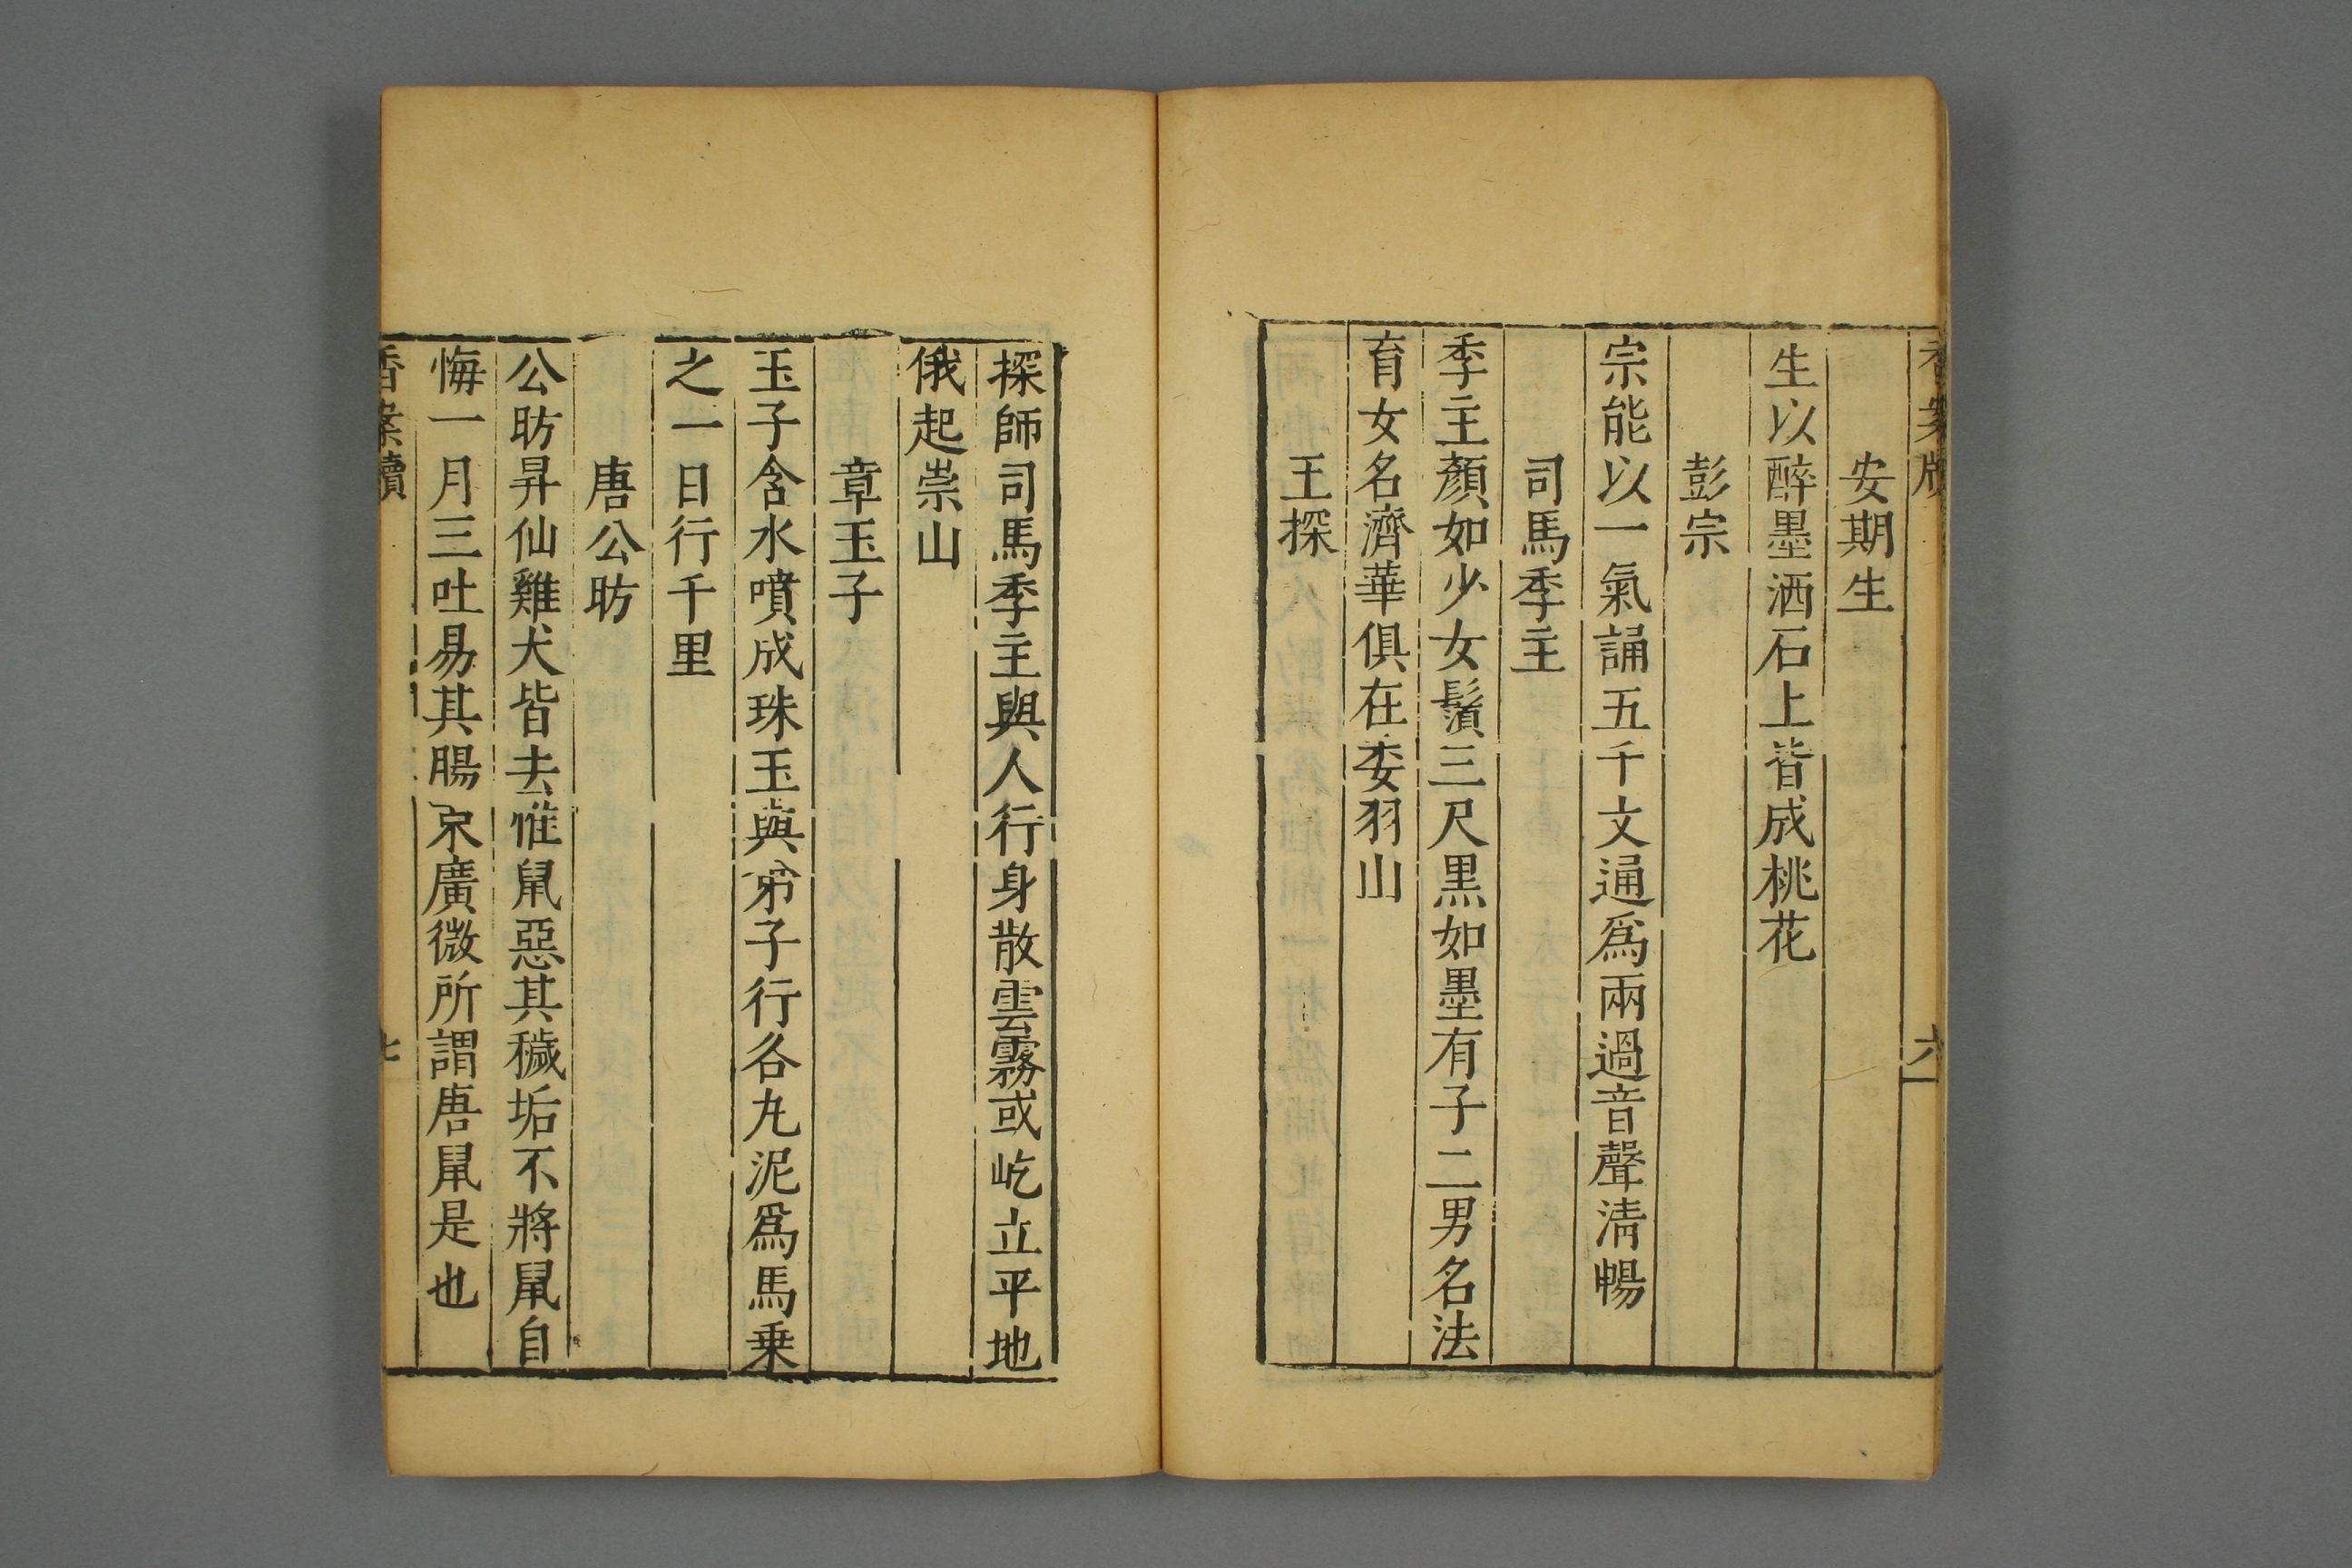 安期生
生以醉墨洒石上皆成桃花
彭宗
宗能以一氣誦五千文通爲兩過音聲清暢
司馬季主
季主顏如少女鬚三尺黒如墨有子二男名法
育女名濟華俱在委羽山
王探
探師司馬季主與人行身散雲霧或屹立平地
俄起崇山
章玉子
玉子含水噴成珠玉與弟子行各丸泥爲馬乗
之一日行千里
唐公昉
公昉昇仙雞犬皆去惟鼠惡其穢垢不將鼠自
悔一月三吐易其腸宋廣微所謂唐鼠是也
香案牘
七